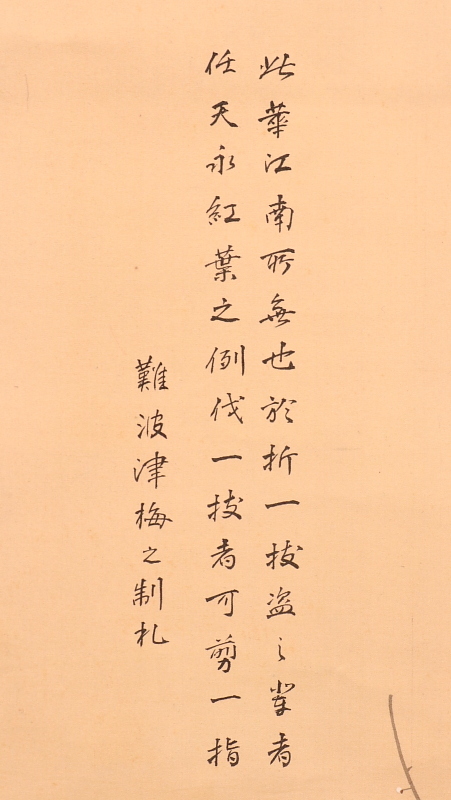 此華江南所無也於折一枝盗之輩者
任天永紅葉之例伐一枝者可剪一指
難波津梅之制札